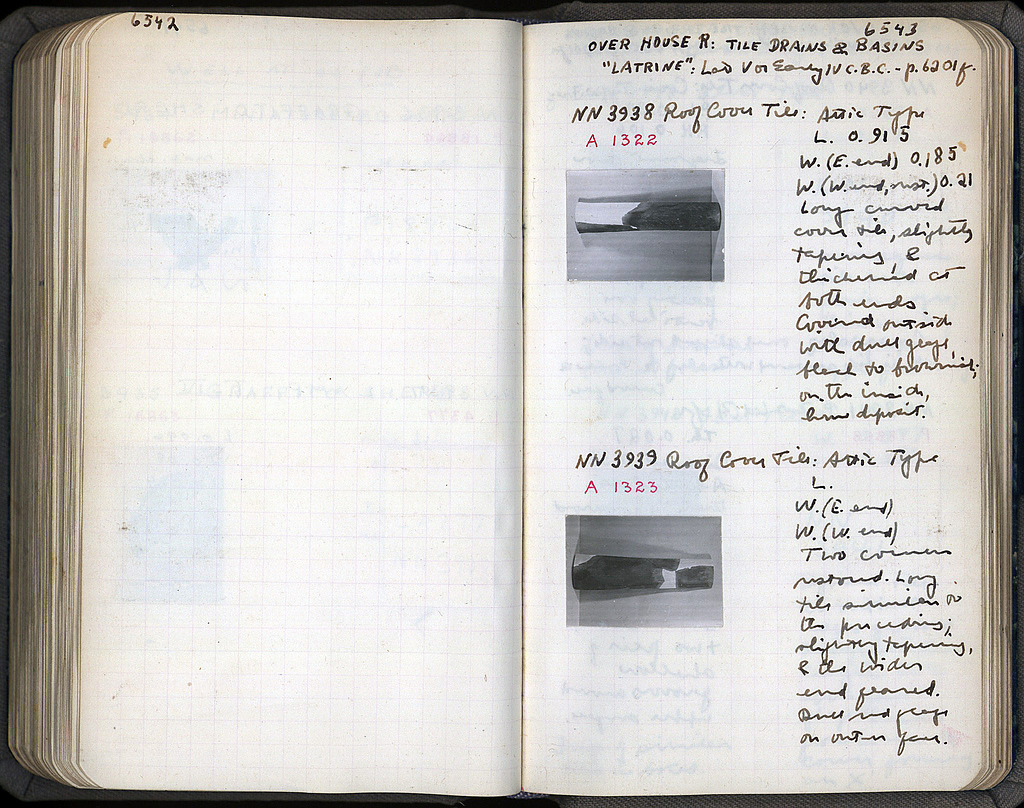 6542
6543
OVER HOUSE R: TILE DRAINS & BASINS
"LATRINE": Late V or Early IV C. B.C. - p. 6201 f.
NN 3938 Roof Cover Tile: Attic Type
A 1322
L. 0.915
W. (E. end) 0.185
W. (W. end, rest.) 0.21
Long curved
cover tile, slightly
tapering &
thickened at
both ends
Covered outside
with dull glaze,
black to brownish;
on the inside,
lime deposit.
NN 3939 Roof Cover Tile: Attic Type
A 1323
L.
W. (E. end)
W. (W. end)
Two corners
restored. Long
tile similar to
the preceding;
slightly tapering,
& the wider
end
Dull red glaze
on outer face.